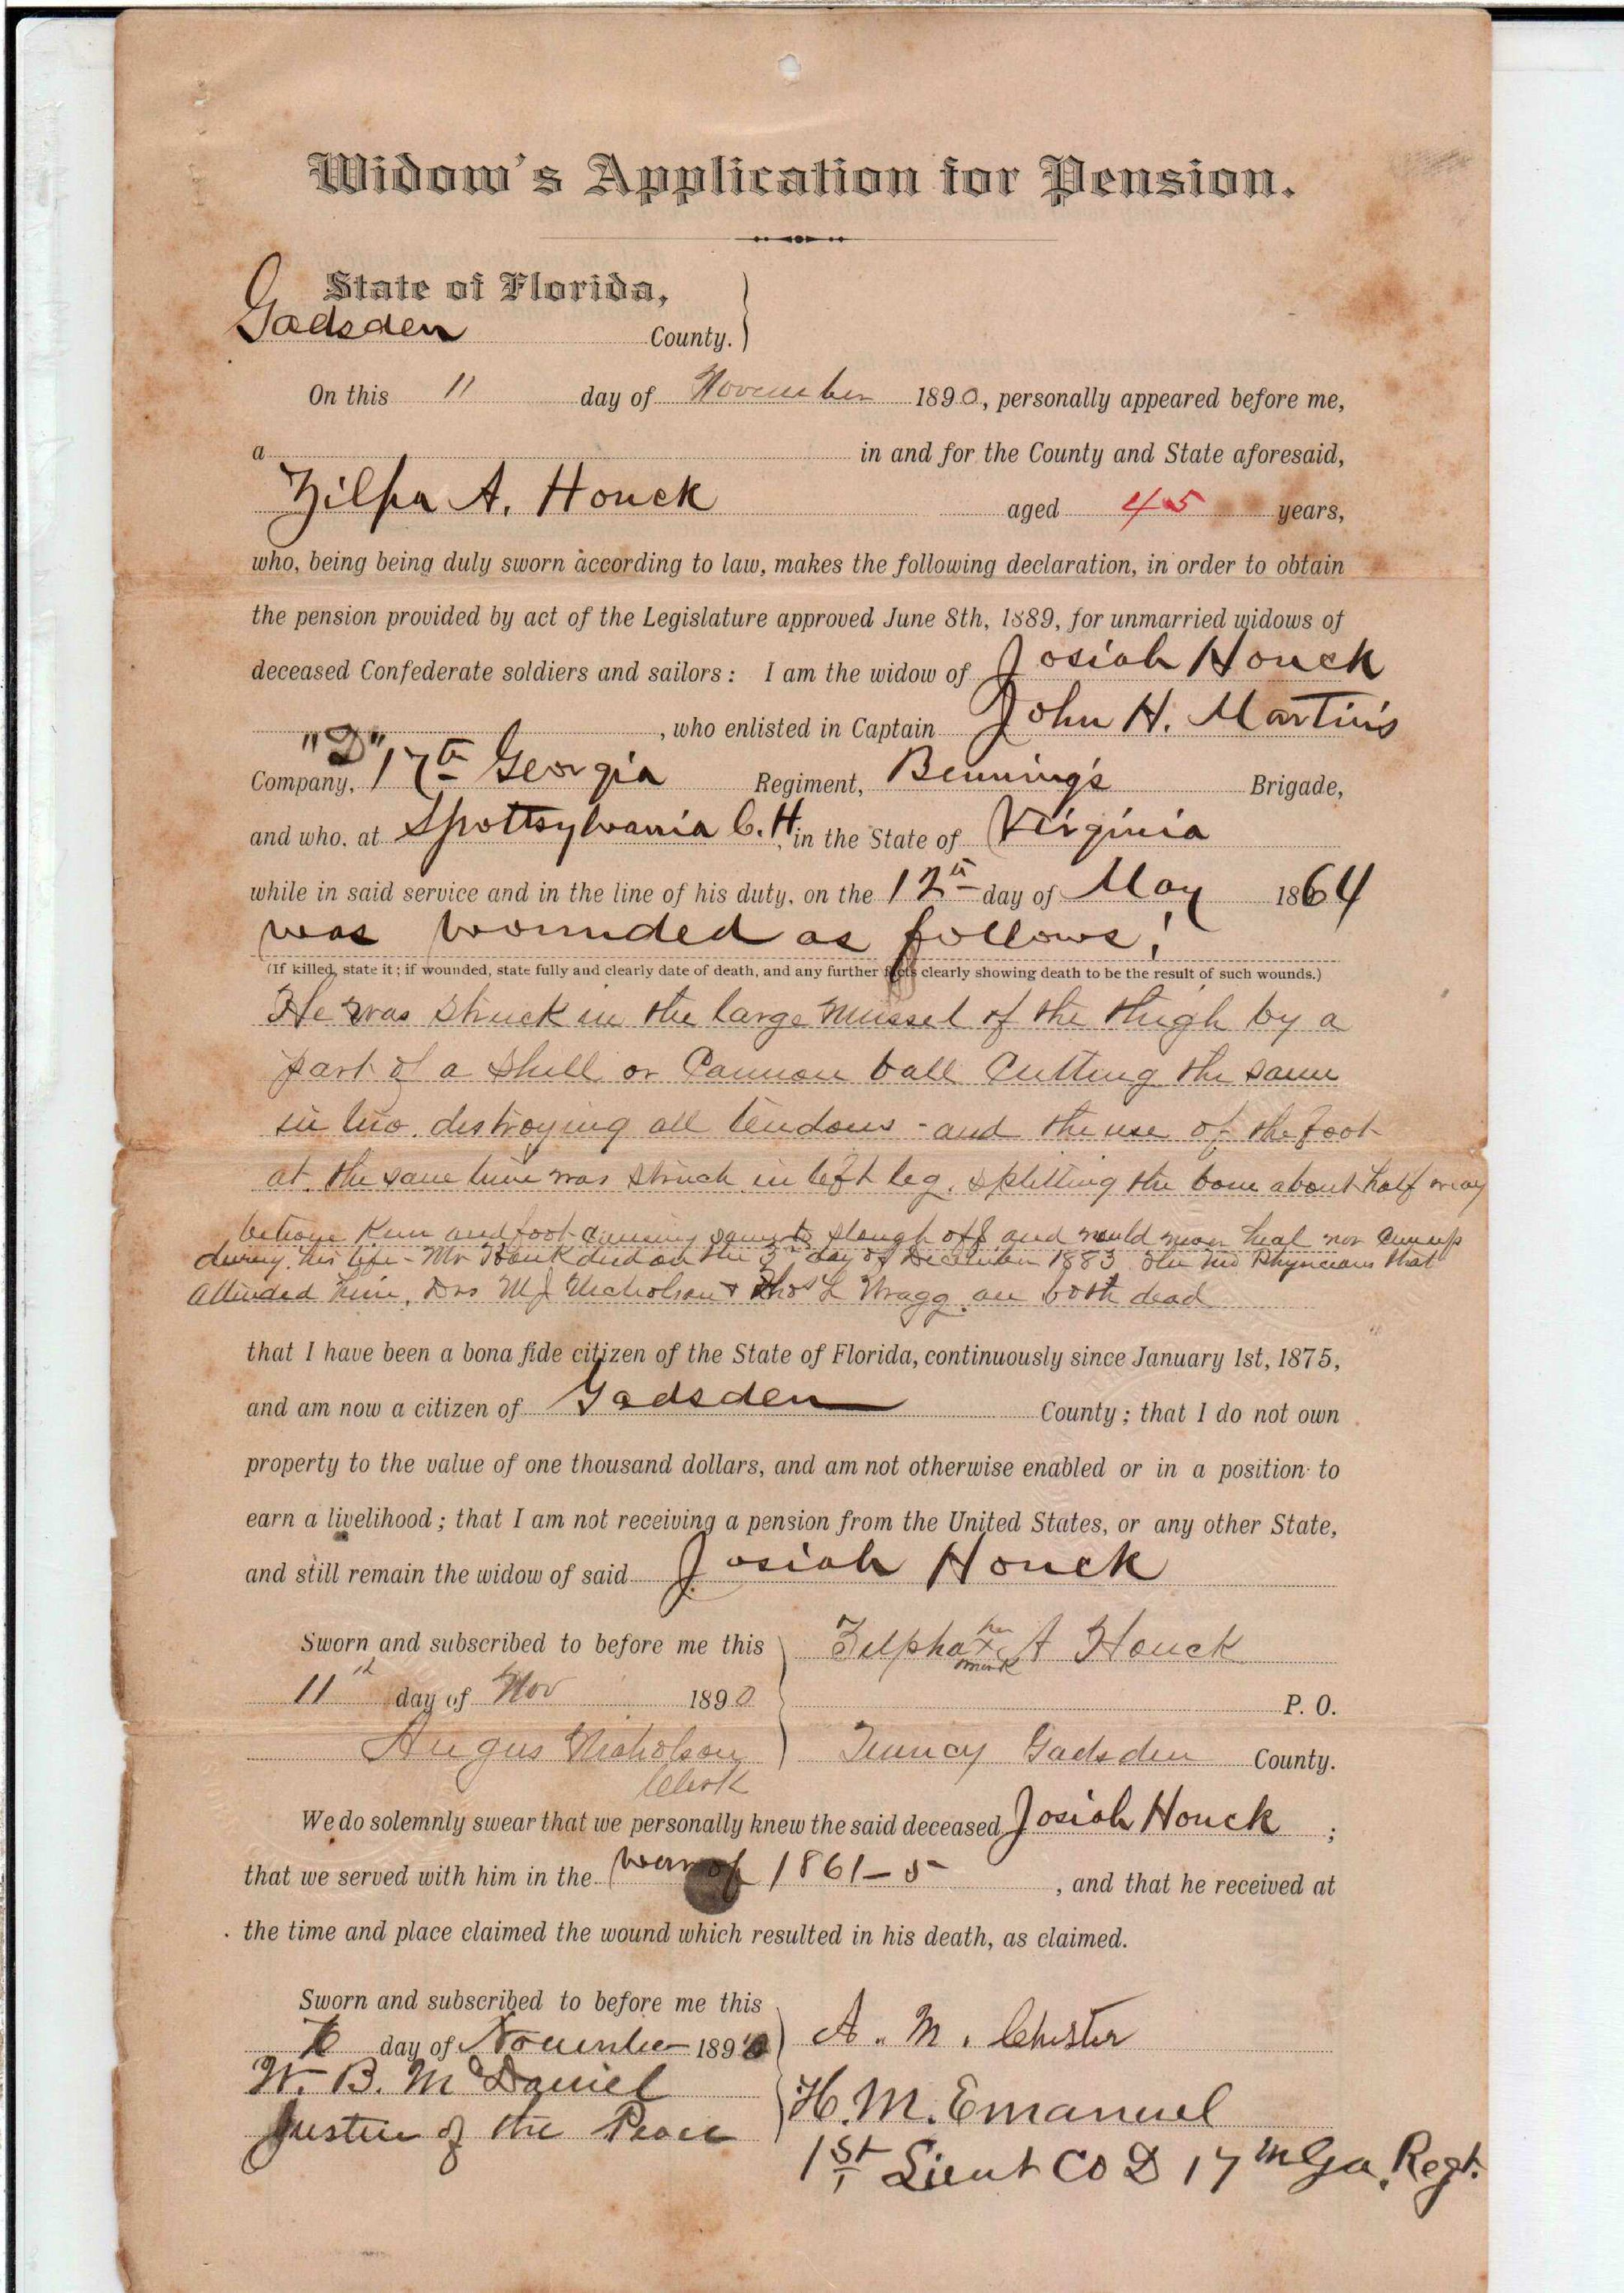 Widow's Application for Pension.
State of Florida,
Gadsden County.
On this 11 day of November 1890, personally appeared before me,
a in and for the County and State aforesaid,
Zilpa A. Houck aged 45 years,
who, being being duly sworn according to law, makes the following declaration, in order to obtain
the pension provided by act of the Legislature approved June 8th, 1889, for unmarried widows of
deceased Confederate soldiers and sailors: I am the widow of Josiah Houck
, who enlisted in Captain John H. Martin's
Company, "D" 17th Georgia Regiment, Benning's Brigade,
and who, at Spottsylvania C.H. in the State of Virginia
while in said service and in the line of his duty, on the 12th day of May 1864
was wounded as follows;
(If killed, state it; if wounded, state fully and clearly date of death, and any further facts clearly showing death to be the result of such wounds.)
He was struck in the large mussel of the thigh by a
part of a shell or Cannon ball Cutting the same
in two. destroying all tendons - and the use of the foot
at the same time was struck in left leg, splitting the bone about half way
and foot causing same to slough off and would never heal nor
during his life - Mr Houck died on the 3rd day of December 1883 The two Physicians that
attended him, Drs M J Nicholson & Thos L Wragg are both dead
that I have been a bona fide citizen of the State of Florida, continuously since January 1st, 1875,
and am now a citizen of Gadsden County; that I do not own
property to the value of one thousand dollars, and am not otherwise enabled or in a position to
earn a livelihood; that I am not receiving a pension from the United States, or any other State,
and still remain the widow of said Josiah Houck
Sworn and subscribed to before me this
11th day of Nov 1890
Angus Nicholson
Clerk
Zilpha her X mark A Houck
P. O.
Quincy Gadsden County.
We do solemnly swear that we personally knew the said deceased Josiah Houck ;
that we served with him in the war of 1861-5 , and that he received at
the time and place claimed the wound which resulted in his death, as claimed.
Sworn and subscribed to before me this
day of November 1890
W. B. McDaniel
Justice of the Peace
A. M. Chester
H. M. Emanuel
1st Lieut Co D 17th Ga. Regt.